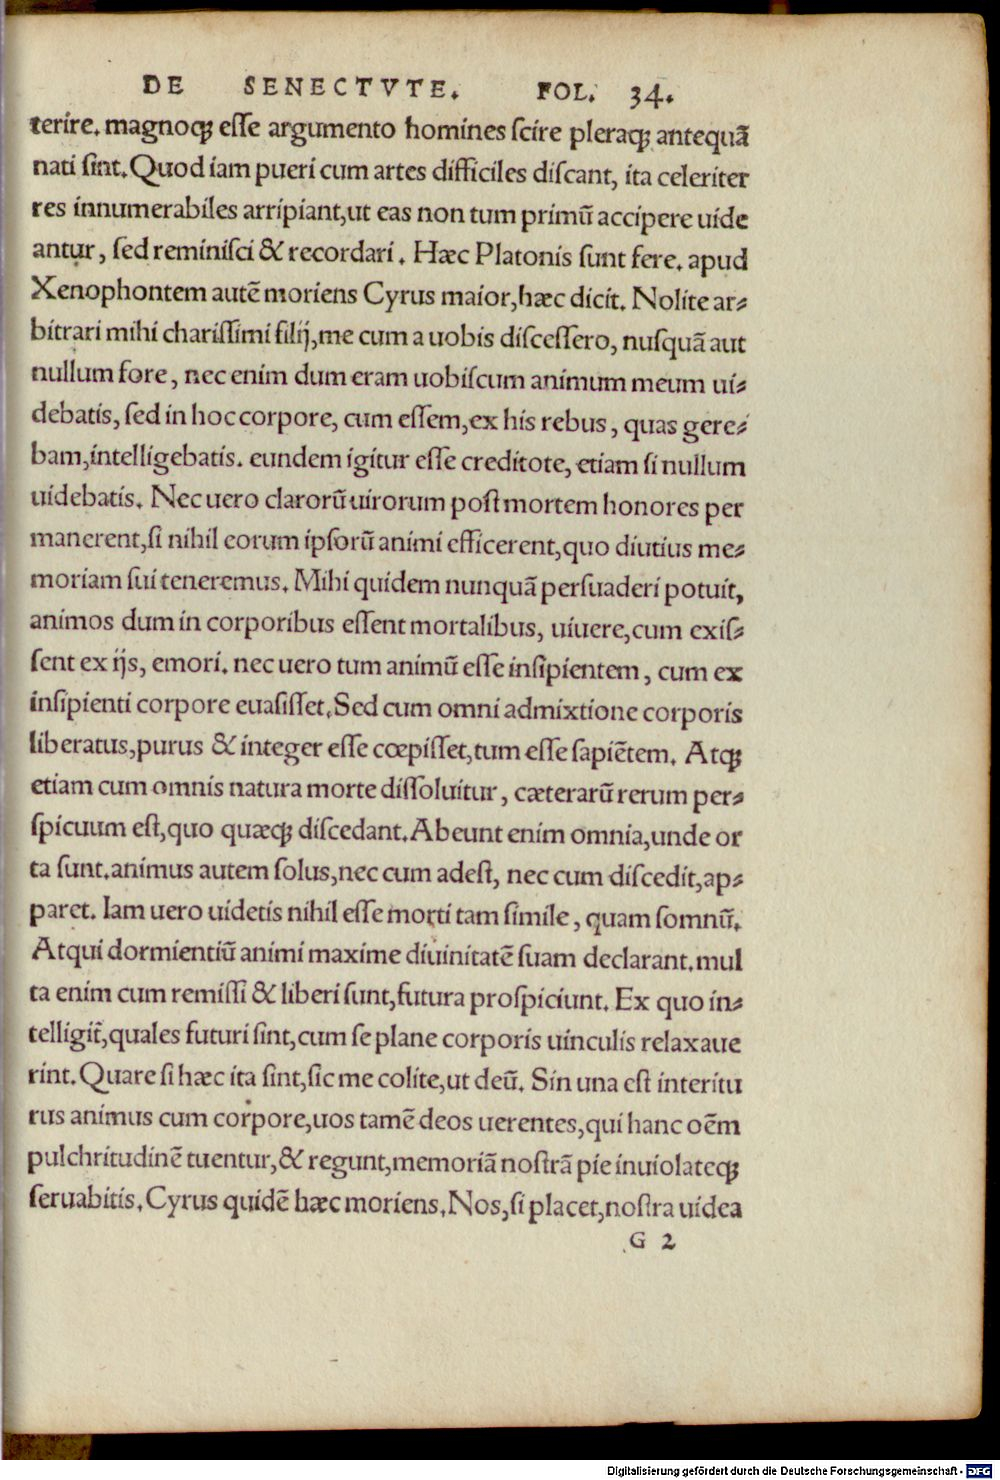 DE SENECTVTE. FOL. 34.
terire. magnoqꝫ eſſe argumento homines ſcire pleraqꝫ antequã
nati ſint. Quod iam pueri cum artes difficiles diſcant, ita celeriter
res innumerabiles arripiant, ut eas non tum primũ accipere uide
antur, ſed reminiſci & recordari. Hæc Platonis ſunt fere. apud
Xenophontem autẽ moriens Cyrus maior, hæc dicit. Nolite ar⸗
bitrari mihi chariſſimi filij, me cum a uobis diſceſſero, nuſquã aut
nullum fore, nec enim dum eram uobiſcum animum meum ui⸗
debatis, ſed in hoc corpore, cum eſſem, ex his rebus, quas gere⸗
bam, intelligebatis. eundem igitur eſſe creditote, etiam ſi nullum
uidebatis. Nec uero clarorũ uirorum poſt mortem honores per
manerent, ſi nihil eorum ipſorũ animi efficerent, quo diutius me⸗
moriam ſui teneremus. Mihi quidem nunquã perſuaderi potuit,
animos dum in corporibus eſſent mortalibus, uiuere, cum exiſ⸗
ſent ex ijs, emori. nec uero tum animũ eſſe inſipientem, cum ex
inſipienti corpore euaſiſſet. Sed cum omni admixtione corporis
liberatus, purus & integer eſſe cœpiſſet, tum eſſe ſapiẽtem. Atqꝫ
etiam cum omnis natura morte diſſoluitur, cæterarũ rerum per⸗
ſpicuum eſt, quo quæqꝫ diſcedant. Abeunt enim omnia, unde or
ta ſunt. animus autem ſolus, nec cum adeſt, nec cum diſcedit, ap⸗
paret. Iam uero uidetis nihil eſſe morti tam ſimile, quam ſomnũ.
Atqui dormientiũ animi maxime diuinitatẽ ſuam declarant. mul
ta enim cum remiſſi & liberi ſunt, futura proſpiciunt. Ex quo in⸗
telligit̃, quales futuri ſint, cum ſe plane corporis uinculis relaxaue
rint. Quare ſi hæc ita ſint, ſic me colite, ut deũ. Sin una eſt interitu
rus animus cum corpore, uos tamẽ deos uerentes, qui hanc oẽm
pulchritudinẽ tuentur, & regunt, memoriã noſtrã pie inuiolateqꝫ
ſeruabitis. Cyrus quidẽ hæc moriens. Nos, ſi placet, noſtra uidea
G 2
Digitalisierung gefördert durch die Deutsche Forschungsgemeinschaft - DFG